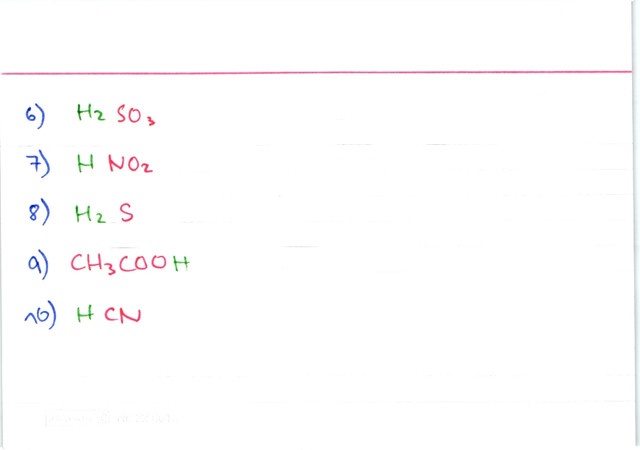 6) H2 SO3
7) H NO2
8) H2 S
9) CH3COOH
10) H CN